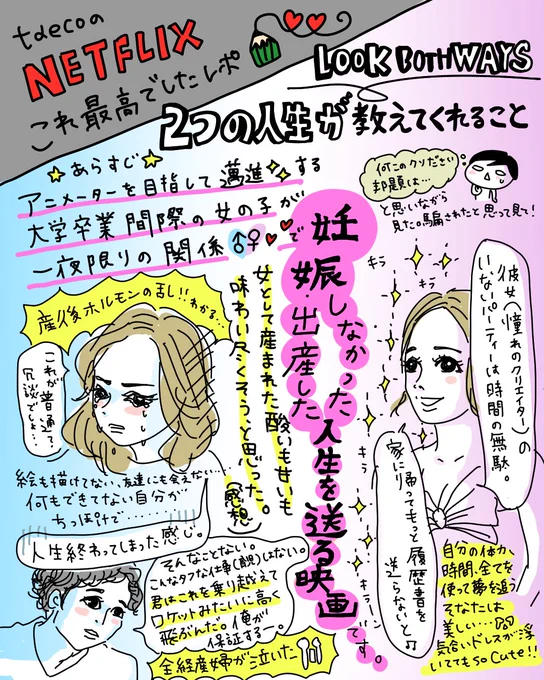 tdecoの
NETFLIX
これ最高でしたレポ
LOOK BOTH WAYS
2つの人生が教えてくれること
あらすじ
アニメーターを目指して邁進する
大学卒業間際の女の子が
一夜限りの関係♂♀で
妊娠・出産した
しなかった
人生を送る映画
です。
何このクソださい
邦題は…
と思いながら
見た。騙されたと思って見て!
キラ
キラ
産後ホルモンの苦し!!わかる…
これが普通?
冗談でしょ…
女として産まれた酸いも甘いも
味わい尽くそう、と思った。
(感想)
彼女(憧れのクリエイター)の
いないパーティーは時間の無駄。
家に帰ってもっと履歴書を
送らないと♫
キラ
キラ
キラーン
絵も描けてない、友達にも会えない…
何もできてない自分が
ちっぽけで………
人生終わってしまった感じ。
そんなことない。
こんなタフな仕事(親)はない。
君はこれを乗り越えて
ロケットみたいに高く
飛ぶんだ。俺が
保証するー。
全経産婦が泣いた
自分の体力、
時間、全てを
使って夢を追う
そなたは
美しい…
気合いドレスが浮
いててもSo Cute!!